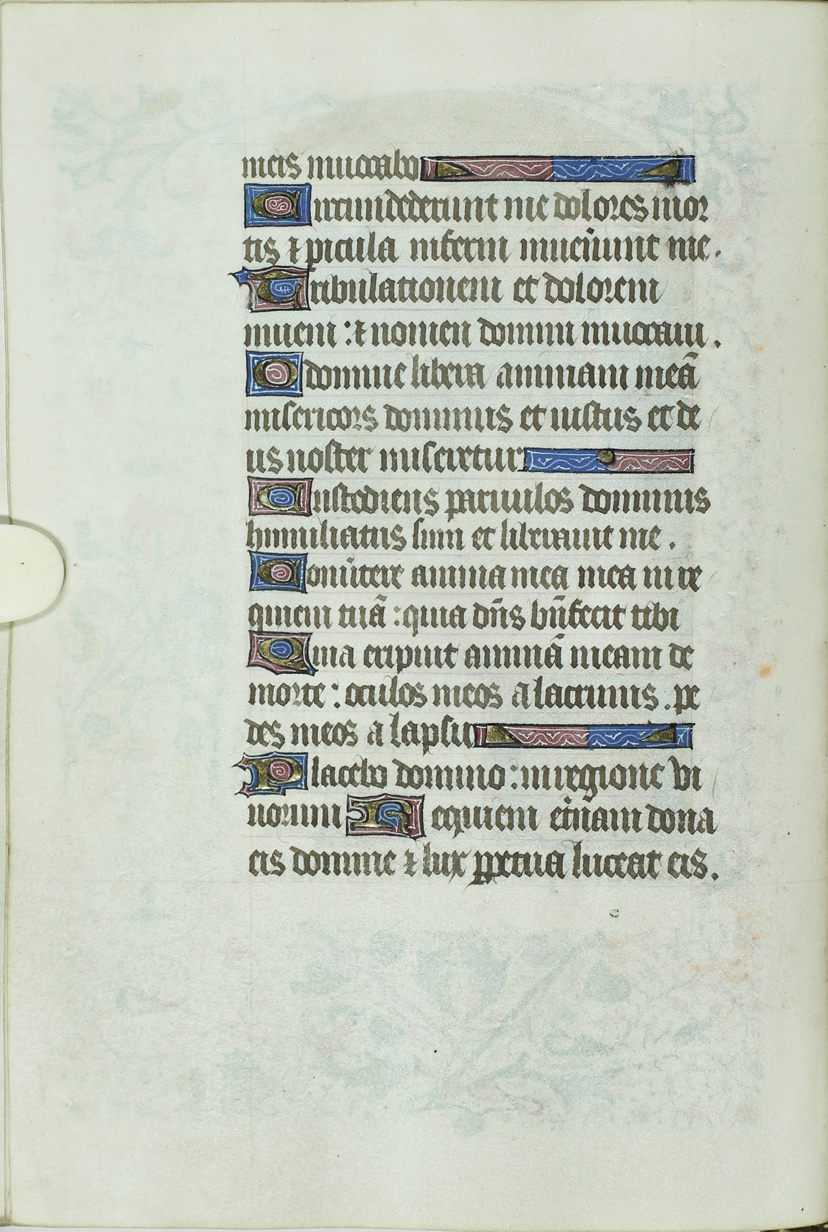 meis inuocabo
Circumdederunt me dolores mor
tis ⁊ picula inferni inuenerunt me.
Tribulationem et dolorem
inueni : ⁊ nomen domini inuocaui .
O domine libera animam meā
misericors dominus et iustus et de
us noster miseretur
Custodiens paruulos dominus
humiliatus sum et liberauit me .
Conuertere anima mea mea in re
quiem tuā : quia dn̄s bn̄fecit tibi
Quia eripuit animā meam de
morte : oculos meos a lacrimis . pe
des meos a lapsu
Placebo domino : in regione vi
uorum Requiem et̄nam dona
eis domine ⁊ lux ꝑpetua luceat eis .